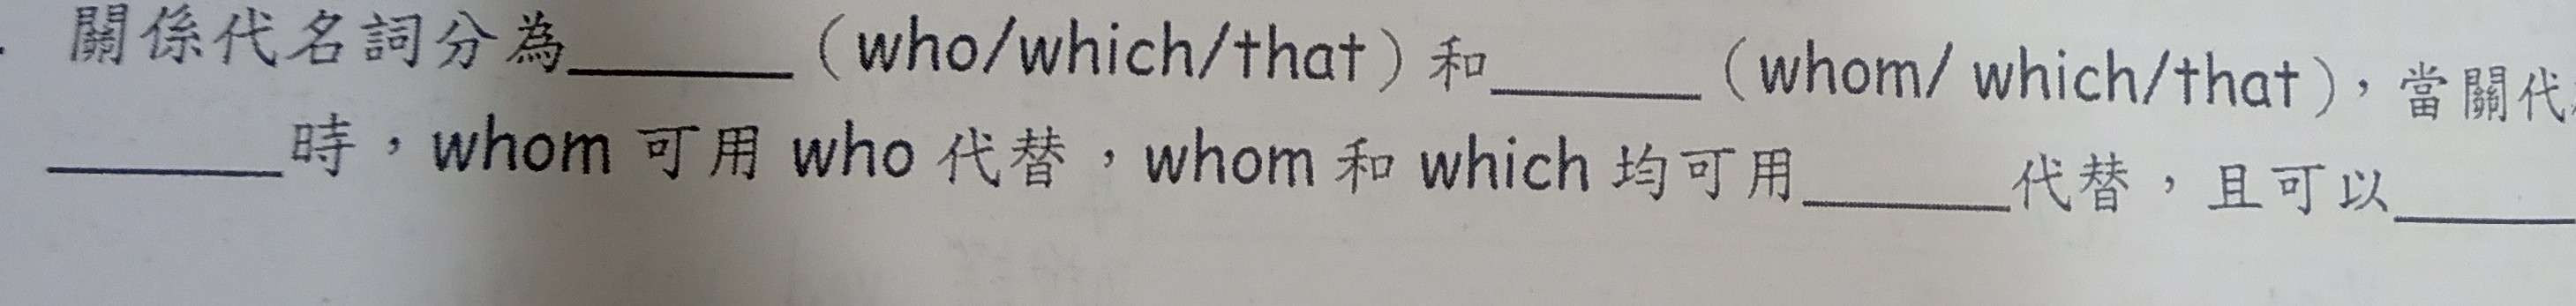 關係代名詞分為______（who/which/that）和______（whom/ which/that），當關代
______時，whom 可用 who 代替，whom 和 which 均可用______代替，且可以______